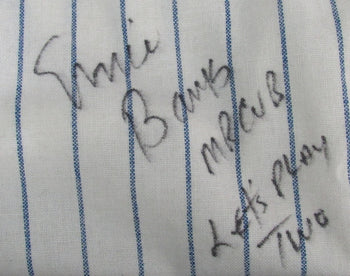 Ernie
Banks
MR CUB
Let's PLAY
TWO